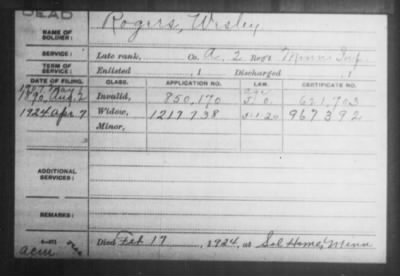 DEAD
NAME OF SOLDIER: Rogers, Wesley
SERVICE: Late rank, Co. A, 2 Reg't Minn Inf
TERM OF SERVICE: Enlisted , 1 Discharged , 1
DATE OF FILING. CLASS. APPLICATION NO. LAW. CERTIFICATE NO.
1890, Aug 2 Invalid, 850,170 621,703
1924 Apr 7 Widow, 1217738 5-1-20 967392
Minor,
ADDITIONAL SERVICES:
REMARKS:
acm
Died Feb 17, 1924, at Sol Home, Minn